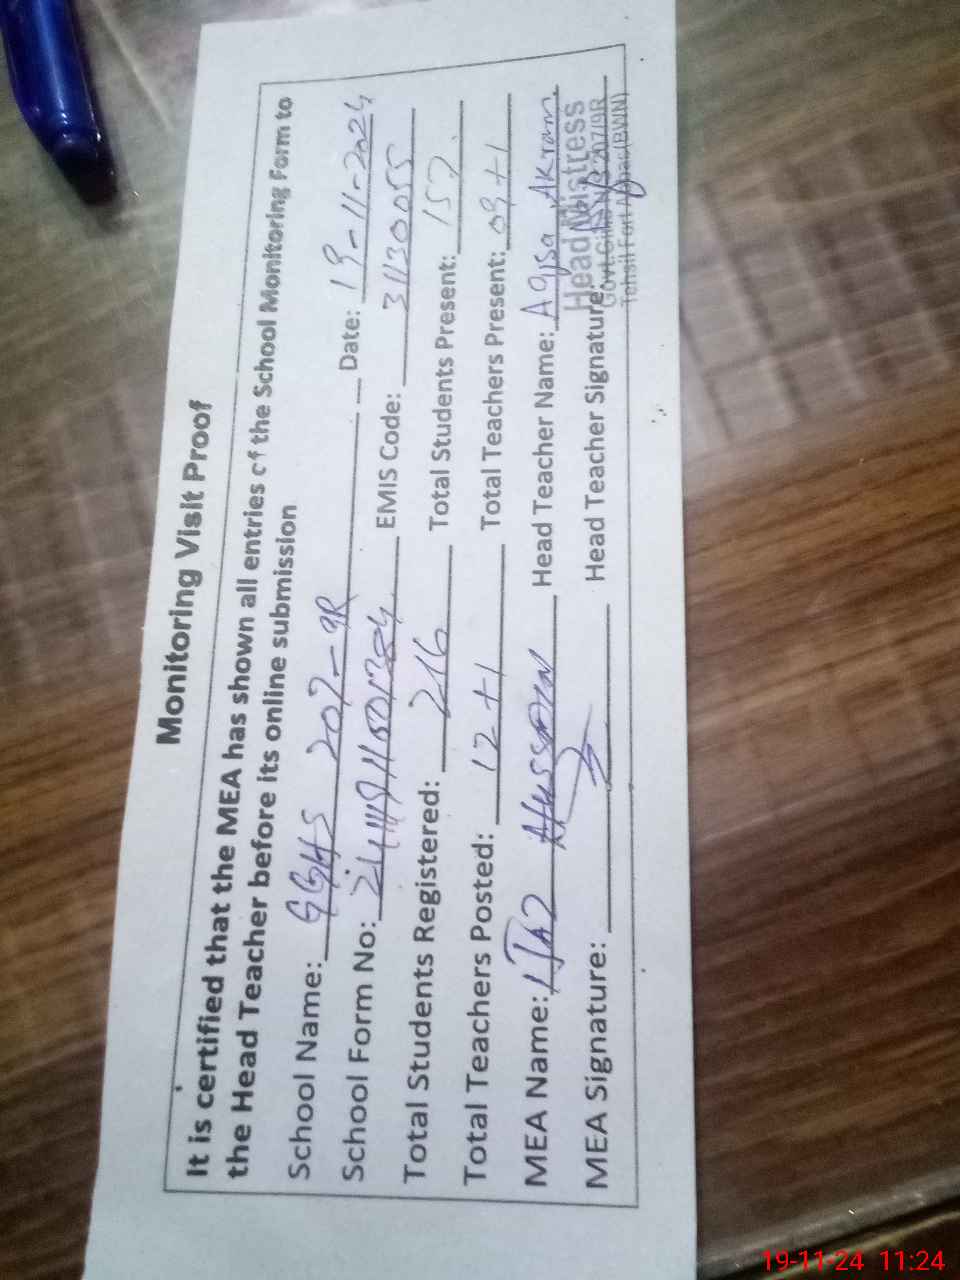 Monitoring Visit Proof
It is certified that the MEA has shown all entries of the School Monitoring Form to
the Head Teacher before its online submission
School Name: GGHS 207-9R Date: 19-11-2024
School Form No: EMIS Code: 31130055
Total Students Registered: 216 Total Students Present: 157
Total Teachers Posted: 12+1 Total Teachers Present: 09+1
MEA Name: IJAZ HUSSAIN Head Teacher Name: Aqsa Akram
MEA Signature: Head Teacher Signature:
Head Mistress
Govt. Girls 207/9R
Tehsil Fort Abbas (BWN)
19-11-24 11:24